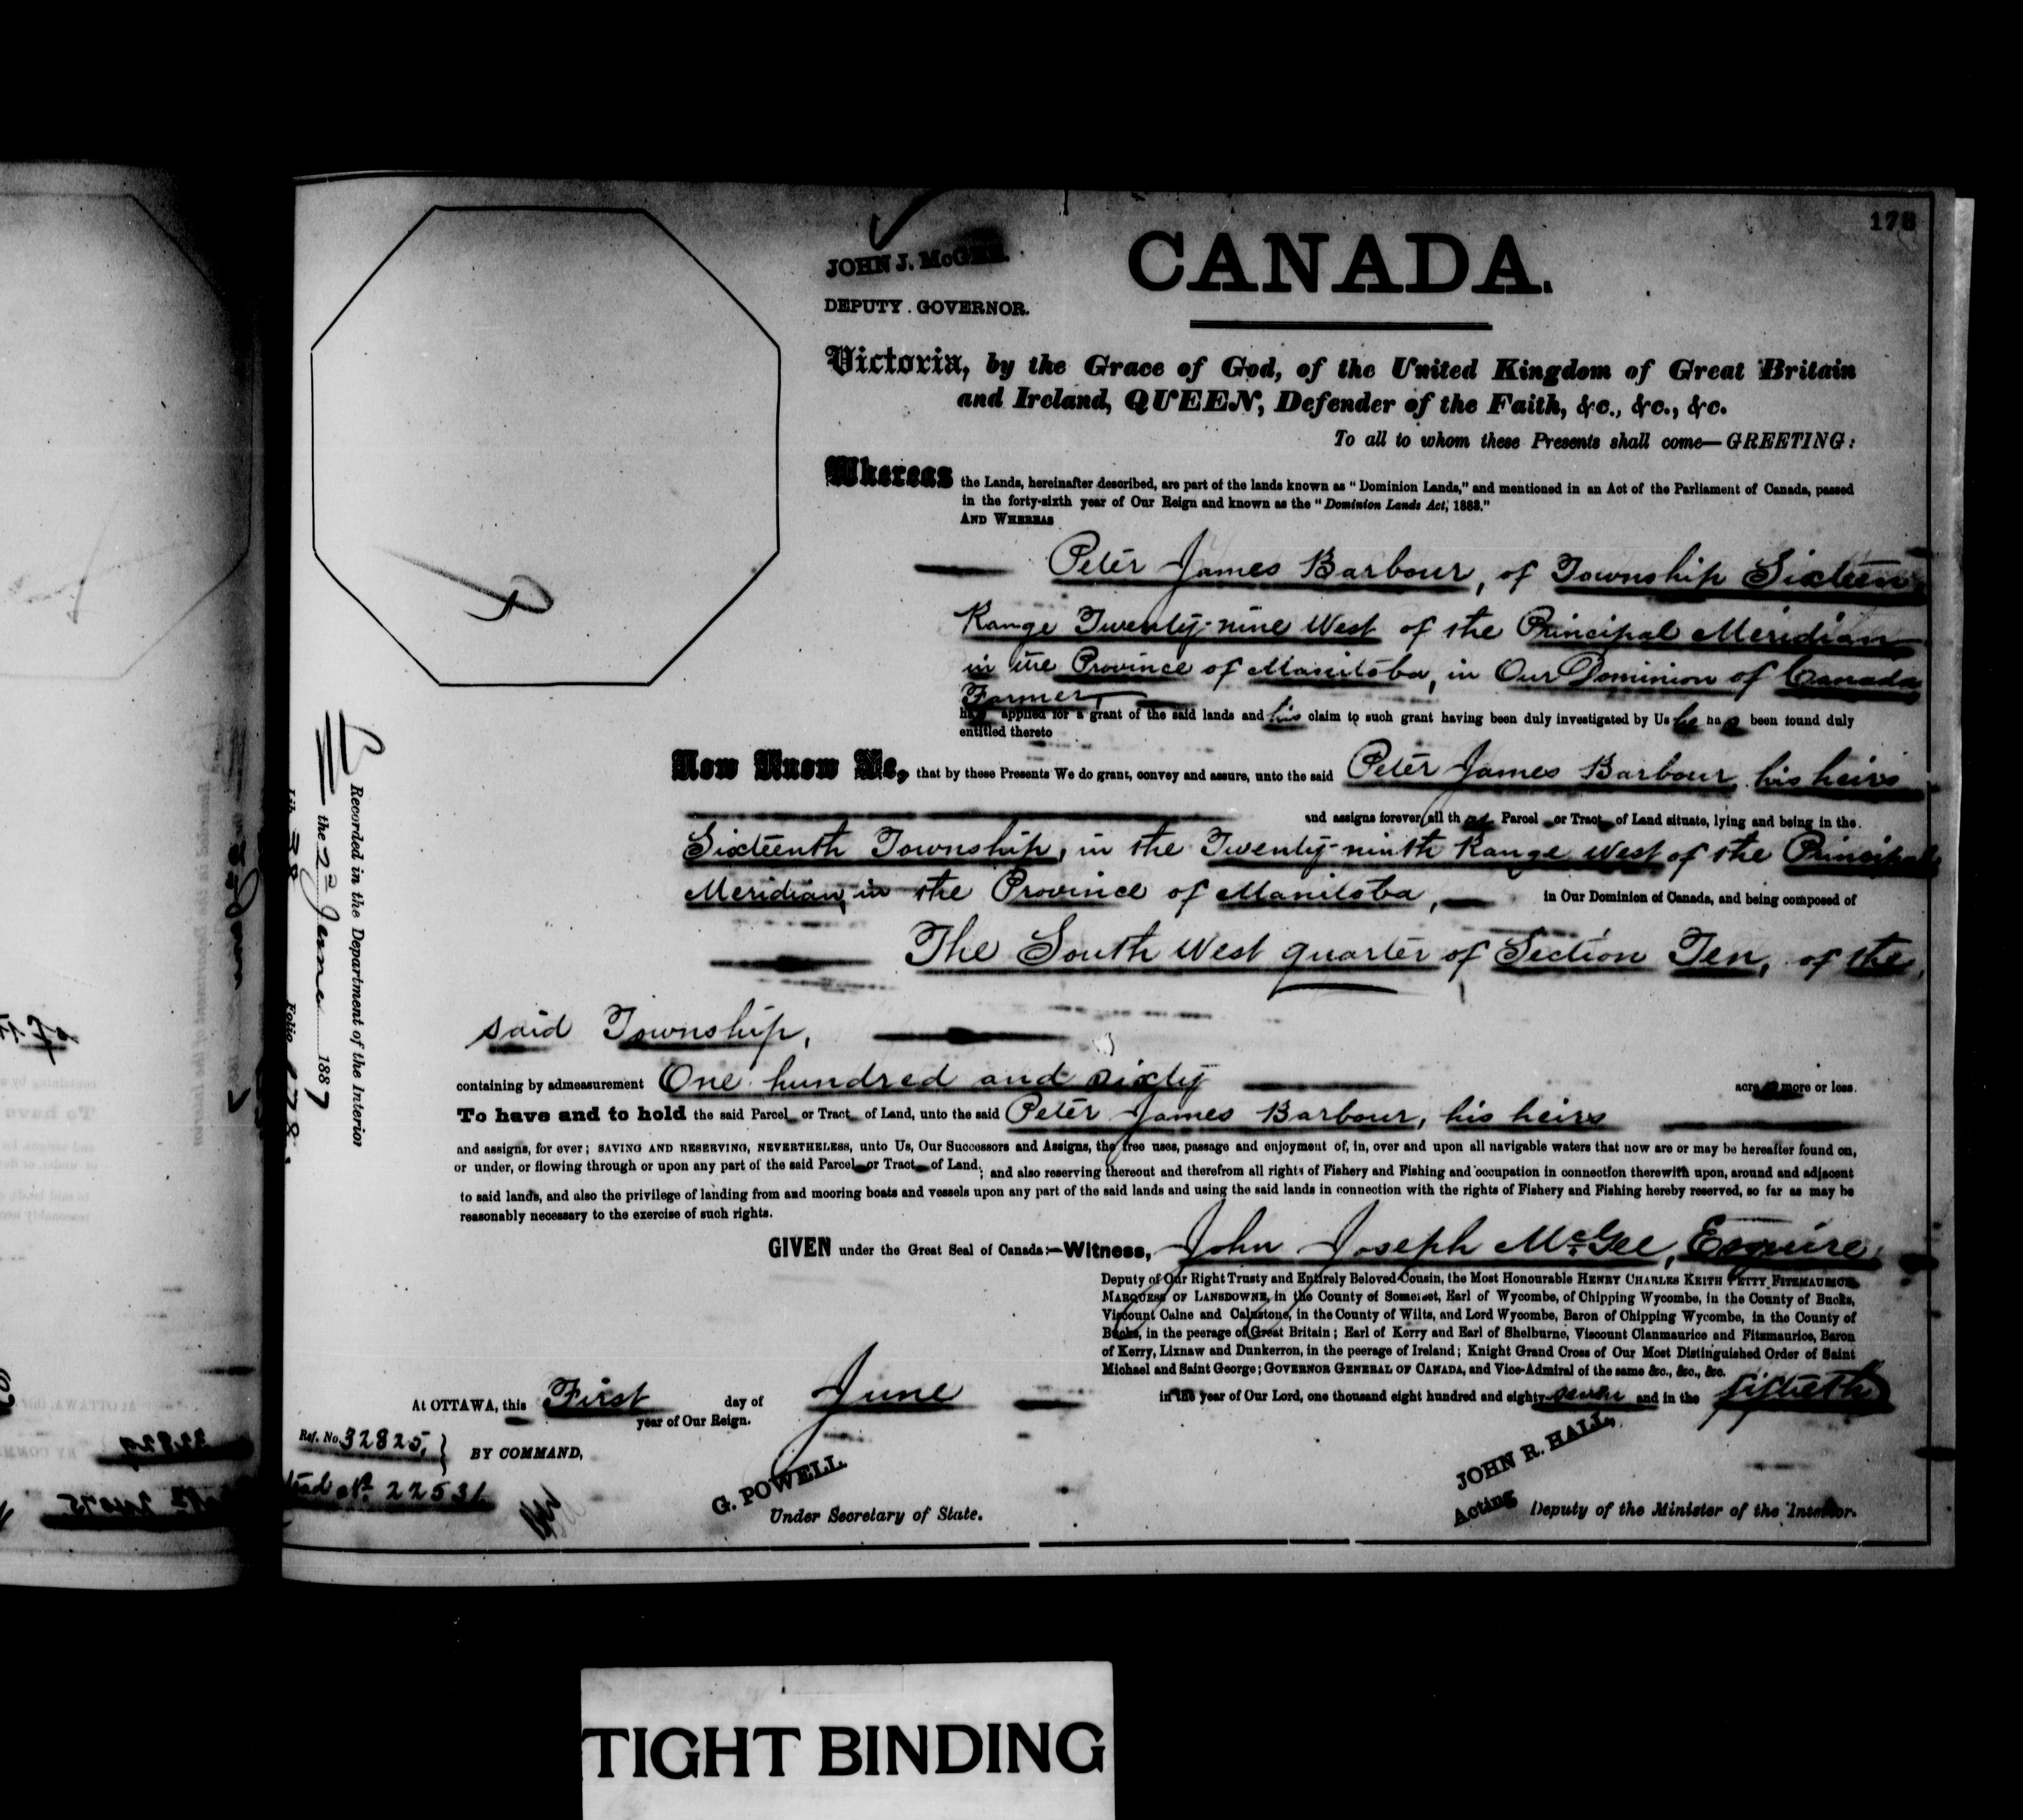 178
JOHN J. McGEE.
DEPUTY GOVERNOR.
CANADA.
Victoria, by the Grace of God, of the United Kingdom of Great Britain
and Ireland, QUEEN, Defender of the Faith, &c., &c., &c.
To all to whom these Presents shall come—GREETING:
Whereas the Lands, hereinafter described, are part of the lands known as "Dominion Lands," and mentioned in an Act of the Parliament of Canada, passed
in the forty-sixth year of Our Reign and known as the "Dominion Lands Act, 1883."
AND WHEREAS
Peter James Barbour, of Township Sixteen
Range Twenty-nine West of the Principal Meridian
in the Province of Manitoba, in Our Dominion of Canada
Farmer,
has applied for a grant of the said lands and his claim to such grant having been duly investigated by Us he has been found duly
entitled thereto
Now Know Ye, that by these Presents We do grant, convey and assure, unto the said Peter James Barbour, his heirs
and assigns forever, all that Parcel or Tract of Land situate, lying and being in the
Sixteenth Township, in the Twenty-ninth Range West of the Principal
Meridian, in the Province of Manitoba, in Our Dominion of Canada, and being composed of
The South West quarter of Section Ten, of the
said Township,
containing by admeasurement One hundred and sixty acres more or less.
To have and to hold the said Parcel or Tract of Land, unto the said Peter James Barbour, his heirs
and assigns, for ever; SAVING AND RESERVING, NEVERTHELESS, unto Us, Our Successors and Assigns, the free uses, passage and enjoyment of, in, over and upon all navigable waters that now are or may be hereafter found on,
or under, or flowing through or upon any part of the said Parcel or Tract of Land; and also reserving thereout and therefrom all rights of Fishery and Fishing and occupation in connection therewith upon, around and adjacent
to said lands, and also the privilege of landing from and mooring boats and vessels upon any part of the said lands and using the said lands in connection with the rights of Fishery and Fishing hereby reserved, so far as may be
reasonably necessary to the exercise of such rights.
GIVEN under the Great Seal of Canada:—Witness, John Joseph McGee, Esquire
Deputy of Our Right Trusty and Entirely Beloved Cousin, the Most Honourable HENRY CHARLES KEITH PETTY FITZMAURICE,
MARQUESS OF LANSDOWNE, in the County of Somerset, Earl of Wycombe, of Chipping Wycombe, in the County of Bucks,
Viscount Calne and Calnstone, in the County of Wilts, and Lord Wycombe, Baron of Chipping Wycombe, in the County of
Bucks, in the peerage of Great Britain; Earl of Kerry and Earl of Shelburne, Viscount Clanmaurice and Fitzmaurice, Baron
of Kerry, Lixnaw and Dunkerron, in the peerage of Ireland; Knight Grand Cross of Our Most Distinguished Order of Saint
Michael and Saint George; GOVERNOR GENERAL OF CANADA, and Vice-Admiral of the same &c., &c., &c.
At OTTAWA, this First day of June in the year of Our Lord, one thousand eight hundred and eighty-seven and in the fiftieth
year of Our Reign.
Ref. No. 32825,
BY COMMAND,
No. 22531
G. POWELL.
Under Secretary of State.
JOHN R. HALL,
Acting Deputy of the Minister of the Interior.
Recorded in the Department of the Interior
the 22 June 1887
Lib. 38 Folio 178.
TIGHT BINDING